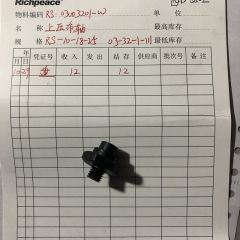 Richpeace
物料编码 RS:03003201-W 单位
名称 上压布轴 最高库存
规格 RS-10-18-25 03-32-1-111 最低库存
年 凭证号 收入 发出 结存 供应商 批次号 备注
月 日
10 29 12 12